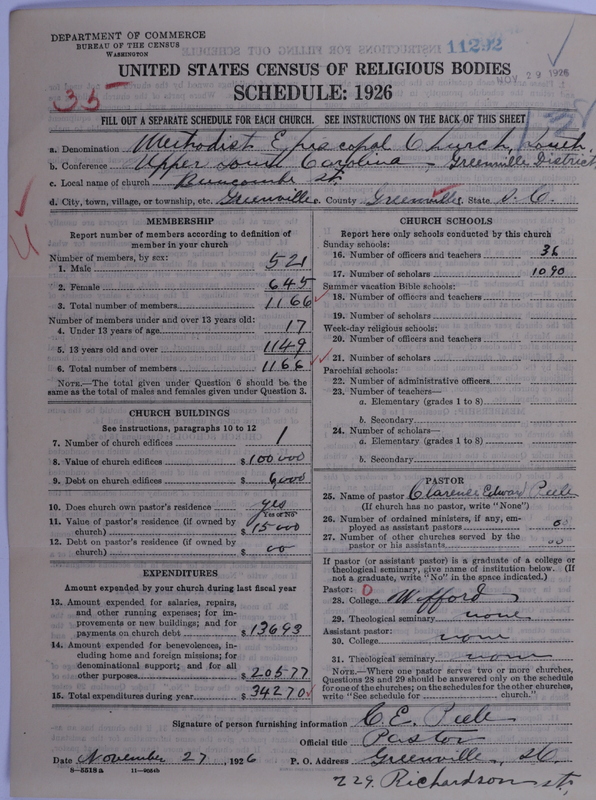 DEPARTMENT OF COMMERCE
BUREAU OF THE CENSUS
WASHINGTON
11292
NOV 29 1926
UNITED STATES CENSUS OF RELIGIOUS BODIES
35
SCHEDULE: 1926
FILL OUT A SEPARATE SCHEDULE FOR EACH CHURCH. SEE INSTRUCTIONS ON THE BACK OF THIS SHEET
a. Denomination Methodist Episcopal Church, South.
b. Conference Upper South Carolina - Greenville District
c. Local name of church Buncombe St.
d. City, town, village, or township, etc. Greenville e. County Greenville f. State S. C.
MEMBERSHIP
Report number of members according to definition of
member in your church
Number of members, by sex:
1. Male 521
2. Female 645
3. Total number of members 1166
Number of members under and over 13 years old:
4. Under 13 years of age 17
5. 13 years old and over 1149
6. Total number of members 1166
NOTE.—The total given under Question 6 should be the
same as the total of males and females given under Question 3.
CHURCH BUILDINGS
See instructions, paragraphs 10 to 12
7. Number of church edifices 1
8. Value of church edifices $ 100000
9. Debt on church edifices $ 6,000
10. Does church own pastor's residence yes
Yes or No
11. Value of pastor's residence (if owned by
church) $ 15000
12. Debt on pastor's residence (if owned by
church) $ 00
EXPENDITURES
Amount expended by your church during last fiscal year
13. Amount expended for salaries, repairs,
and other running expenses; for im-
provements or new buildings; and for
payments on church debt $ 13693
14. Amount expended for benevolences, in-
cluding home and foreign missions; for
denominational support; and for all
other purposes $ 20577
15. Total expenditures during year $ 34270
CHURCH SCHOOLS
Report here only schools conducted by this church
Sunday schools:
16. Number of officers and teachers 36
17. Number of scholars 1090
Summer vacation Bible schools:
18. Number of officers and teachers
19. Number of scholars
Week-day religious schools:
20. Number of officers and teachers
21. Number of scholars
Parochial schools:
22. Number of administrative officers
23. Number of teachers—
a. Elementary (grades 1 to 8)
b. Secondary
24. Number of scholars—
a. Elementary (grades 1 to 8)
b. Secondary
PASTOR
25. Name of pastor Clarence Edward Peele
(If church has no pastor, write "None")
26. Number of ordained ministers, if any, em-
ployed as assistant pastors 00
27. Number of other churches served by the
pastor or his assistants 00
If pastor (or assistant pastor) is a graduate of a college or
theological seminary, give name of institution below. (If
not a graduate, write "No" in the space indicated.)
Pastor: 0
28. College Wofford
29. Theological seminary none
Assistant pastor:
30. College none
31. Theological seminary none
NOTE.—Where one pastor serves two or more churches,
Questions 28 and 29 should be answered only on the schedule
for one of the churches; on the schedules for the other churches,
write "See schedule for church."
Signature of person furnishing information C. E. Peele
Official title Pastor
Date November 27, 1926 P. O. Address Greenville, S.C.
8—5518 a 11—9054b
229. Richardson st,